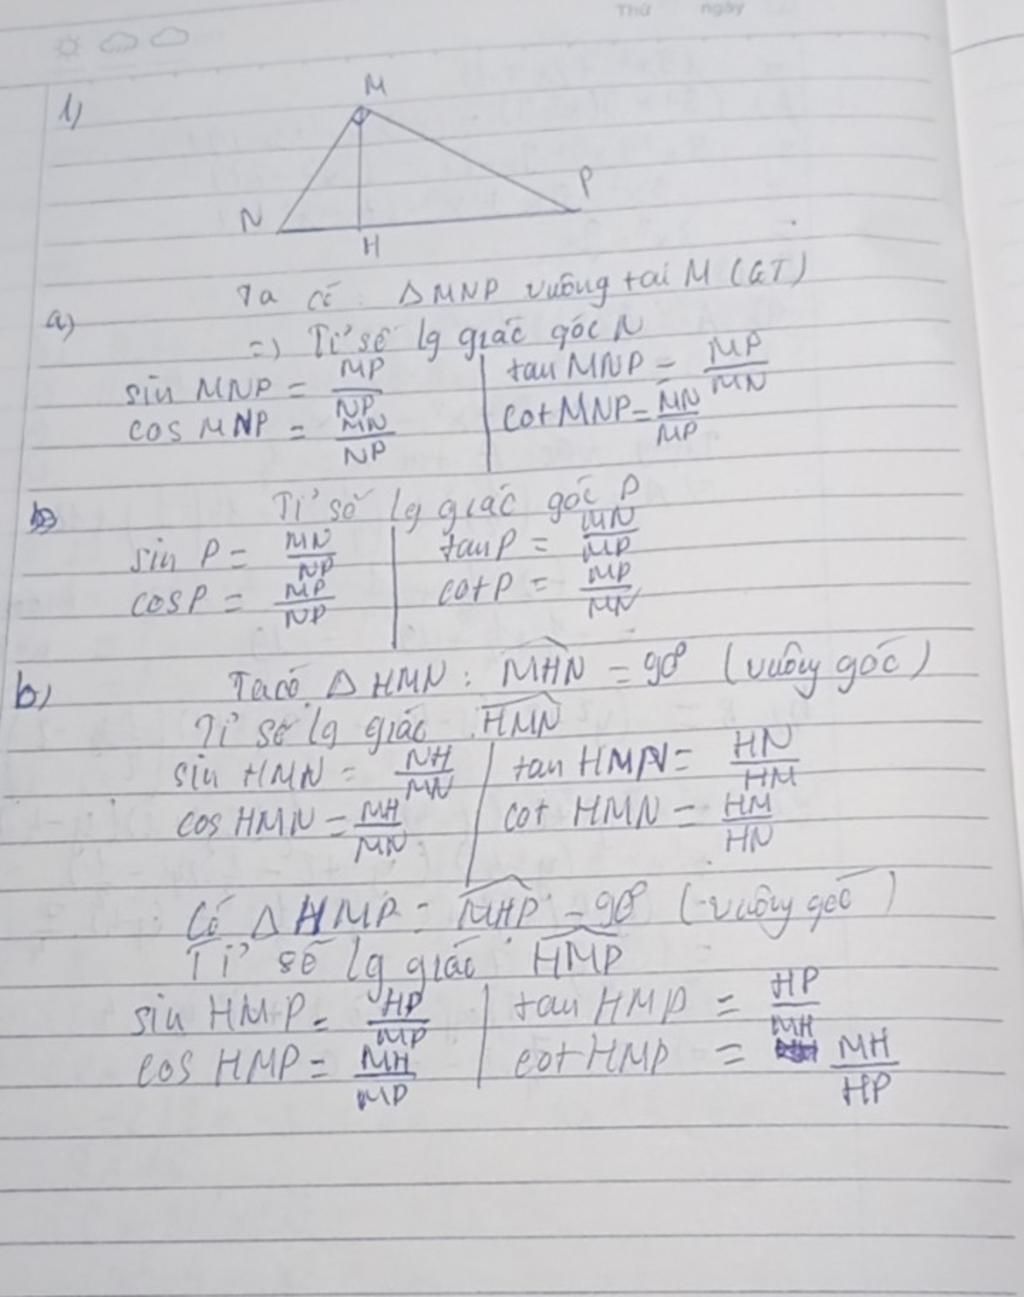 Thứ ngày
1)
M
N
H
P
Ta có: ΔMNP vuông tại M (GT)
a)
=> Tỉ số lg giác góc N
sin MNP = MP/NP | tan MNP = MP/MN
cos MNP = MN/NP | cot MNP = MN/MP
Tỉ số lg giác góc P
sin P = MN/NP | tan P = MN/MP
cos P = MP/NP | cot P = MP/MN
b) Ta có ΔHMN : MHN = 90° (vuông góc)
Tỉ số lg giác HMN
sin HMN = NH/MN | tan HMN = HN/HM
cos HMN = MH/MN | cot HMN = HM/HN
Có ΔHMP = MHP = 90° (vuông góc)
Tỉ số lg giác HMP
sin HMP = HP/MP | tan HMP = HP/MH
cos HMP = MH/MP | cot HMP = MH/HP